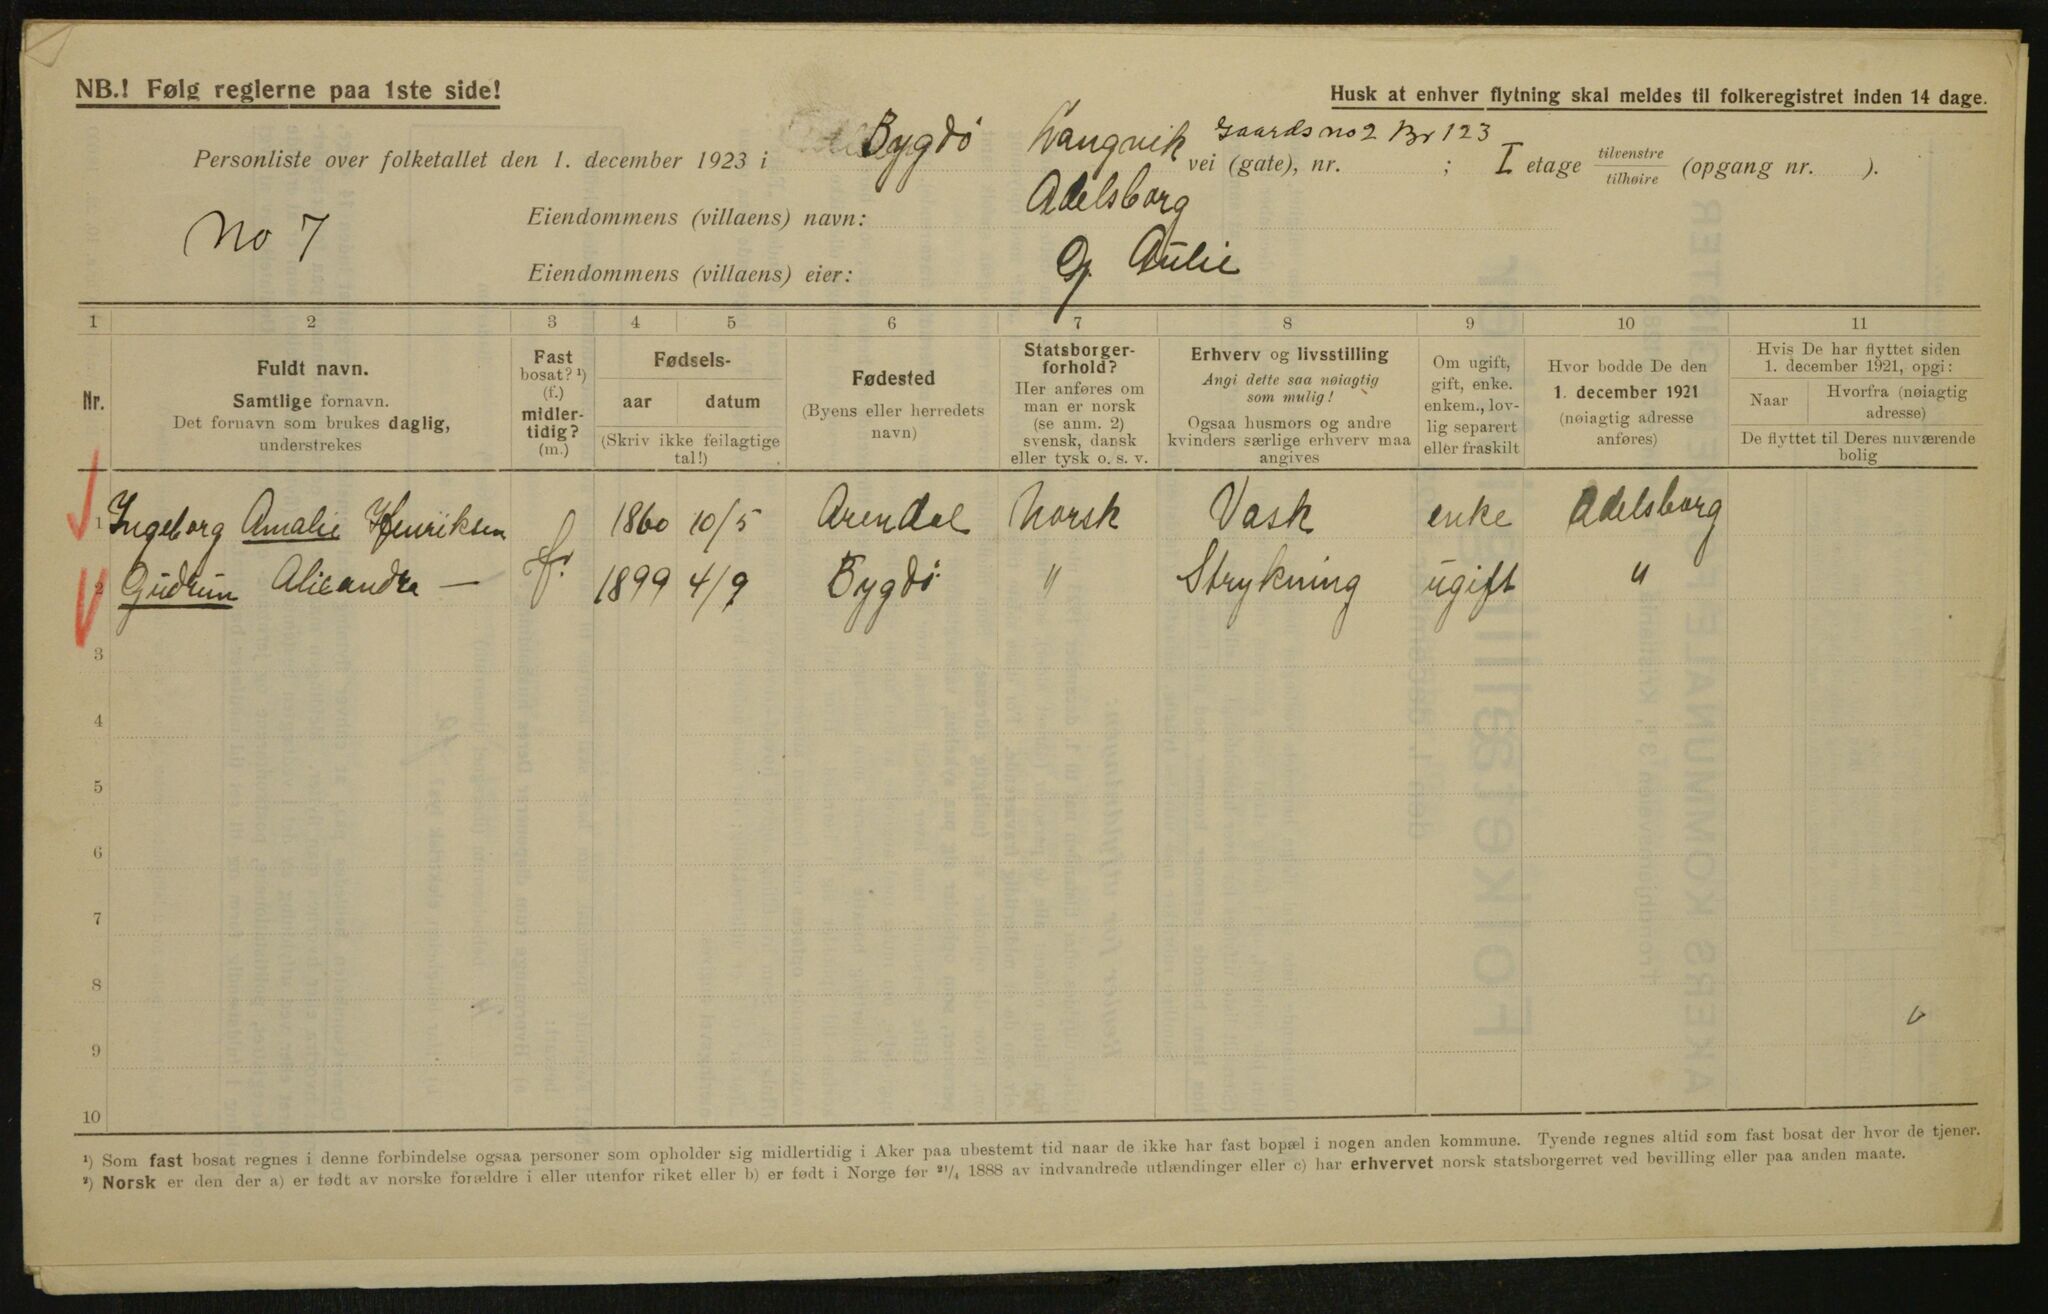 NB.! Følg reglerne paa 1ste side!
Husk at enhver flytning skal meldes til folkeregistret inden 14 dage.
Personliste over folketallet den 1. december 1923 i Bygdö Langvik vei (gate), nr. Gaards no 2 Br 123 ; I etage tilvenstre tilhøire (opgang nr. ).
No 7
Eiendommens (villaens) navn: Adelsborg
Eiendommens (villaens) eier: G. Aulie
1 2 3 4 5 6 7 8 9 10 11
Nr.
Fuldt navn.
Samtlige fornavn.
Det fornavn som brukes daglig, understrekes
Fast bosat? ¹) (f.) midlertidig? (m.)
Fødsels-
aar datum
(Skriv ikke feilagtige tal!)
Fødested
(Byens eller herredets navn)
Statsborgerforhold?
Her anføres om man er norsk (se anm. 2) svensk, dansk eller tysk o. s. v.
Erhverv og livsstilling
Angi dette saa nøiagtig som mulig!
Ogsaa husmors og andre kvinders særlige erhverv maa angives
Om ugift, gift, enke. enkem., lovlig separert eller fraskilt
Hvor bodde De den 1. december 1921 (nøiagtig adresse anføres)
Hvis De har flyttet siden 1. december 1921, opgi:
Naar Hvorfra (nøiagtig adresse)
De flyttet til Deres nuværende bolig
1 Ingeborg Amalie Henriksen f. 1860 10/5 Arendal Norsk Vask enke Adelsborg
2 Gudrun Alexandra — 1899 4/9 Bygdö " Strykning ugift "
3
4
5
6
7
8
9
10
¹) Som fast bosat regnes i denne forbindelse ogsaa personer som opholder sig midlertidig i Aker paa ubestemt tid naar de ikke har fast bopæl i nogen anden kommune. Tyende regnes altid som fast bosat der hvor de tjener.
²) Norsk er den der a) er født av norske forældre i eller utenfor riket eller b) er født i Norge før ²¹/₄ 1888 av indvandrede utlændinger eller c) har erhvervet norsk statsborgerret ved bevilling eller paa anden maate.